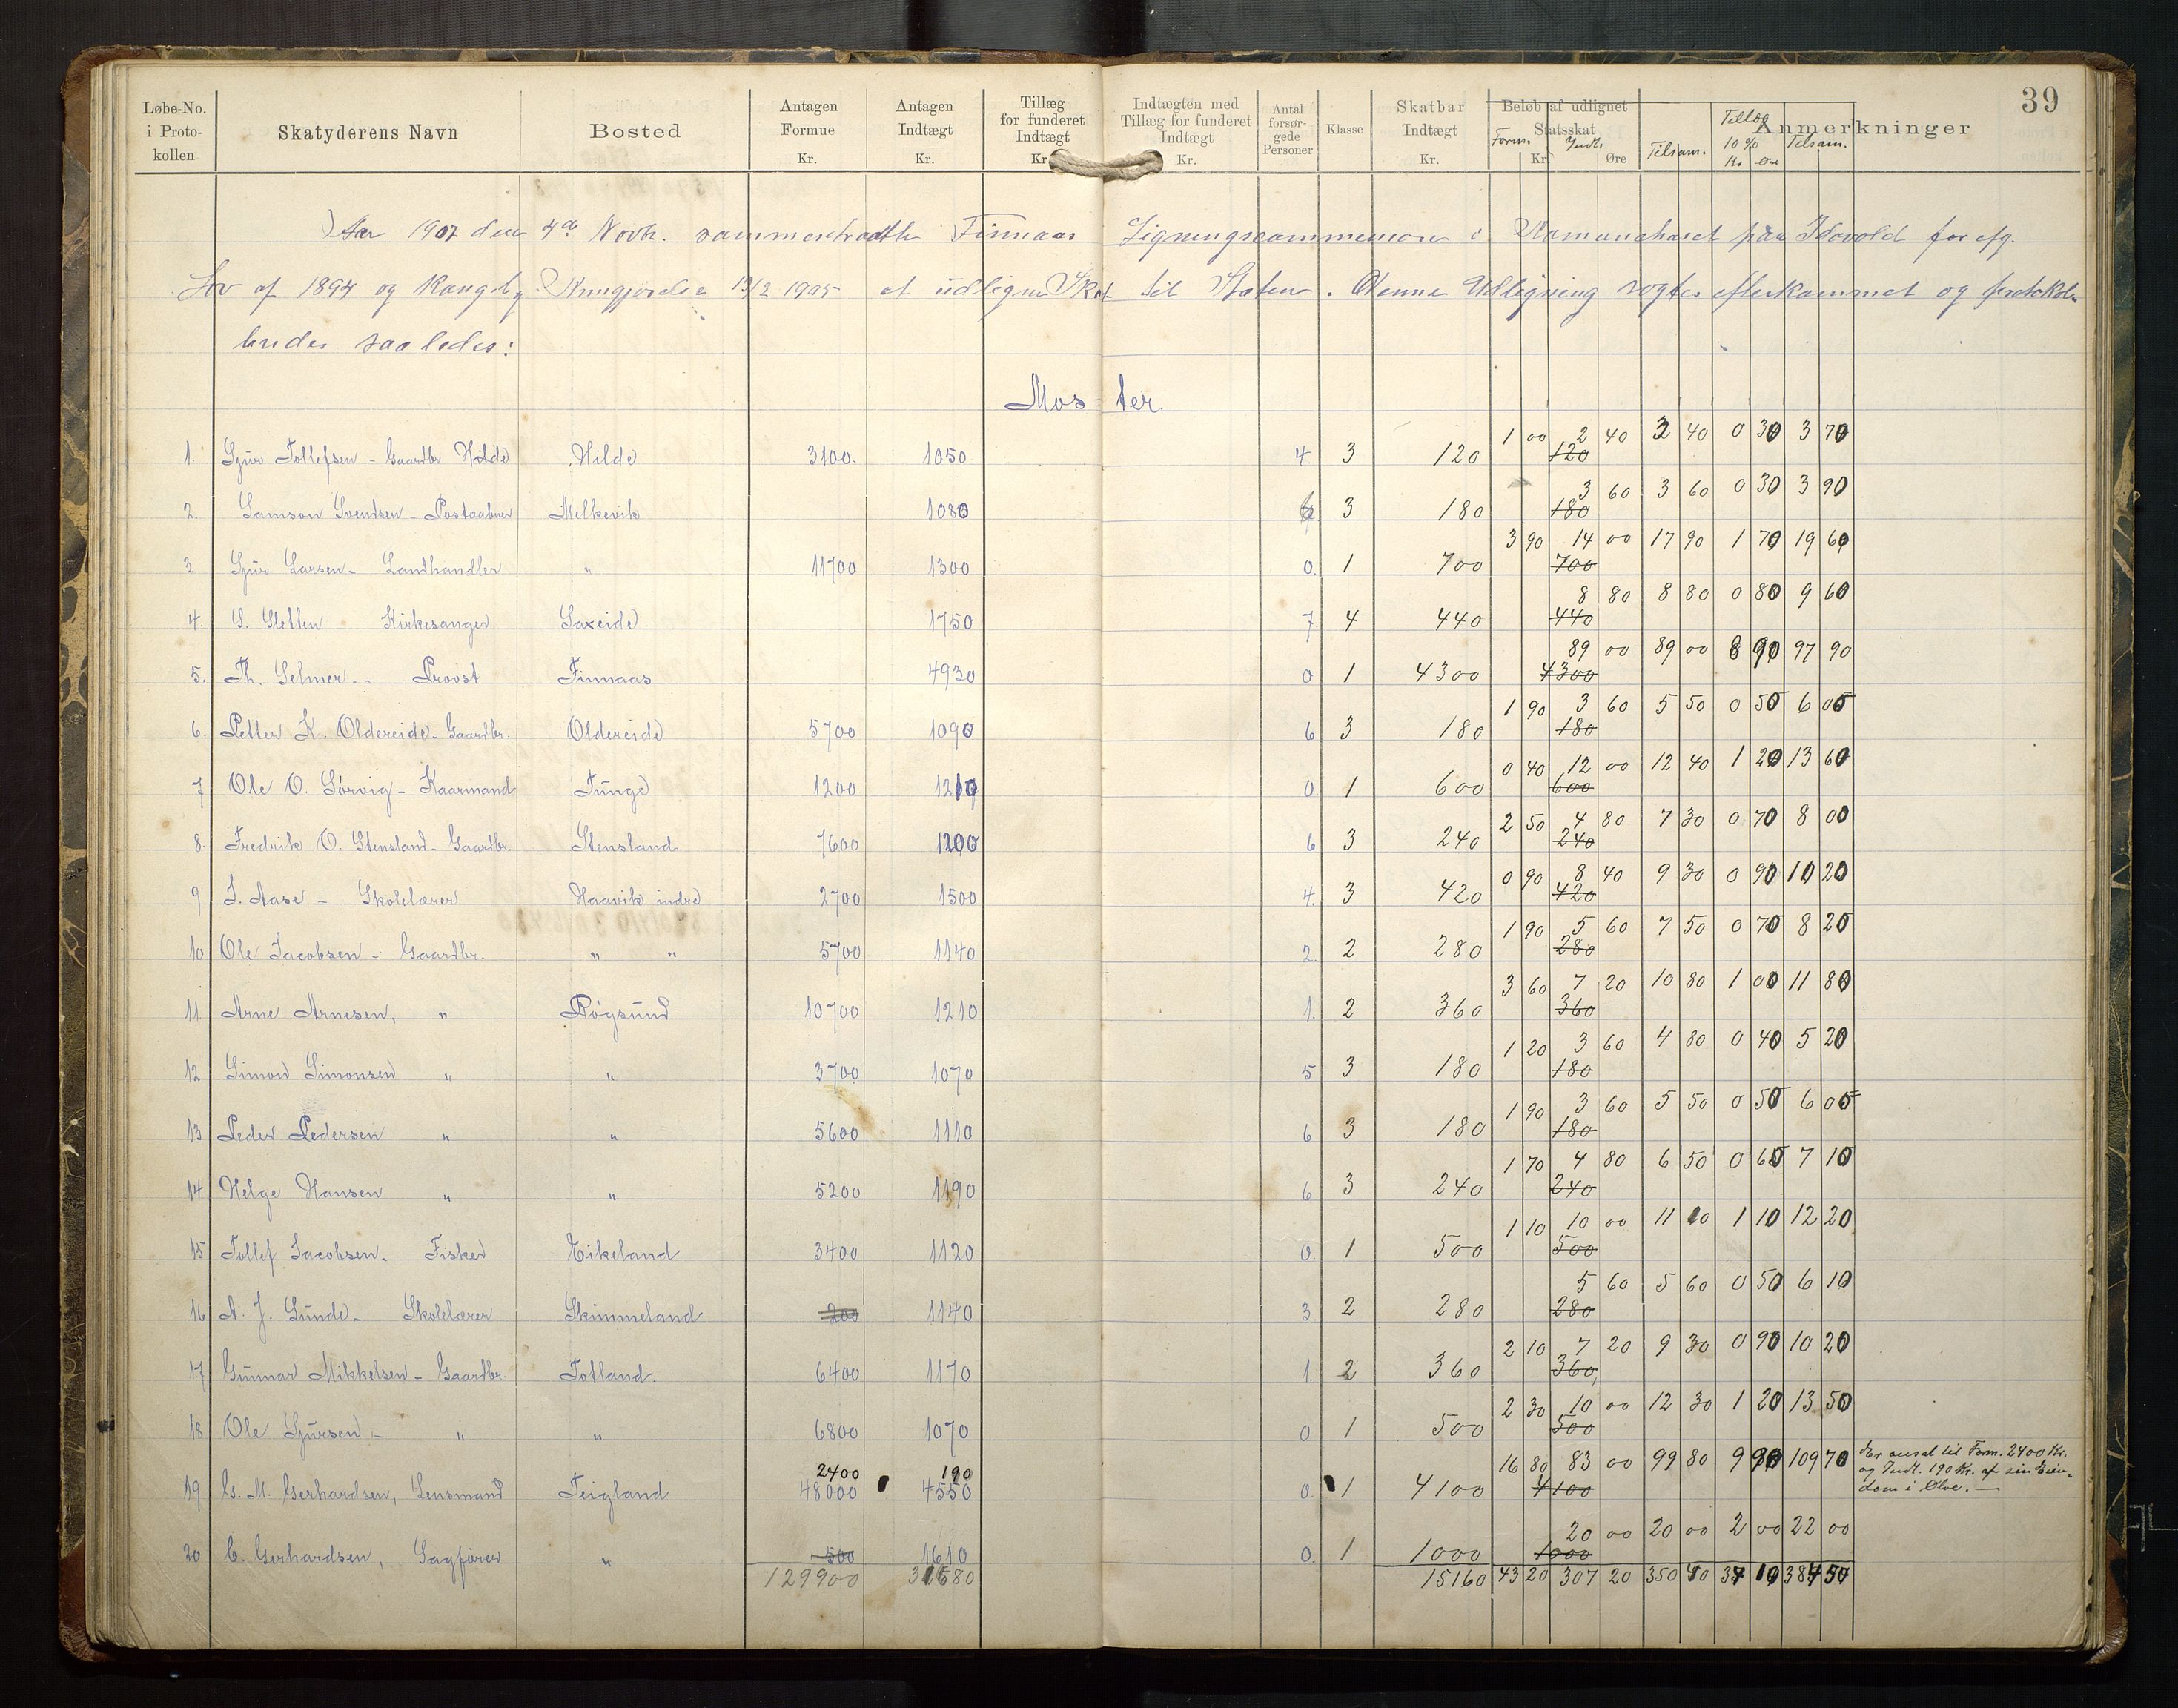 39
Løbe-No. i Proto-kollen | Skatyderens Navn | Bosted | Antagen Formue Kr. | Antagen Indtægt Kr. | Tillæg for funderet Indtægt Kr. | Indtægten med Tillæg for funderet Indtægt Kr. | Antal forsør-gede Personer | Klasse | Skatbar Indtægt Kr. | Beløb af udlignet Statsskat Form. Indt. Kr. Øre | Tilsam. | Tillæg 10 % Kr. Øre | Tilsam. | Anmerkninger
Aar 1907 den 4de Novbr. sammentraadte Finnaas Ligningscommission i paa for efg.
Lov af 1894 og Kongelig Kungjørelse 19/2 1905 at udligne Skat til Staten. Denne Udligning efterkommet og
saaledes:
Moster
1. Sjur Tollefsen - Gaardbr Hilde | Hilde | 3100. | 1050 | 4. | 3 | 120 | 1 00 | 2 40 | 120 | 3 40 | 0 30 | 3 70
2. Samson Svendsen - Postaabner | Melkevik | 1080 | 6 | 3 | 180 | 3 60 | 180 | 3 60 | 0 30 | 3 90
3 Sjur Larsen - Landhandler | " | 11700 | 1300 | 0. | 1 | 700 | 3 90 | 14 00 | 700 | 17 90 | 1 70 | 19 60
4. S. Sletten Kirkesanger | Saxeide | 1750 | 7. | 4 | 440 | 8 80 | 440 | 8 80 | 0 80 | 9 60
5. Th. Selmer - Provst | Finnaas | 4930 | 0 | 1 | 4300 | 89 00 | 4300 | 89 00 | 8 90 | 97 90
6. Petter K. Oldereide - Gaardbr. | Oldereide | 5700 | 1090 | 6 | 3 | 180 | 1 90 | 3 60 | 180 | 5 50 | 0 50 | 6 00
7 Ole O. Sørvig - Kaarmand | Tunge | 1200 | 1210 | 0 | 1 | 600 | 0 40 | 12 00 | 600 | 12 40 | 1 20 | 13 60
8. Fredrik O. Stensland - Gaardbr. | Stensland | 7600 | 1200 | 6 | 3 | 240 | 2 50 | 4 80 | 240 | 7 30 | 0 70 | 8 00
9 J. Aase - Skolelærer | Haavik indre | 2700 | 1500 | 4. | 3 | 420 | 0 90 | 8 40 | 420 | 9 30 | 0 90 | 10 20
10 Ole Jacobsen - Gaardbr. | " " | 5700 | 1140 | 2. | 2 | 280 | 1 90 | 5 60 | 280 | 7 50 | 0 70 | 8 20
11. Arne Arnesen, " | Røgsund | 10700 | 1210 | 1. | 2 | 360 | 3 60 | 7 20 | 360 | 10 80 | 1 00 | 11 80
12 Simon Simonsen " | " | 3700 | 1070 | 5 | 3 | 180 | 1 20 | 3 60 | 180 | 4 80 | 0 40 | 5 20
13 Peder Pedersen " | " | 5600 | 1110 | 6 | 3 | 180 | 1 90 | 3 60 | 180 | 5 50 | 0 50 | 6 00
14 Helge Hansen " | " | 5200 | 1190 | 6 | 3 | 240 | 1 70 | 4 80 | 240 | 6 50 | 0 60 | 7 10
15 Tollef Jacobsen. Fisker | Eikeland | 3400 | 1120 | 0. | 1 | 500 | 1 10 | 10 00 | 500 | 11 10 | 1 10 | 12 20
16 A. J. Sunde - Skolelærer | Skimmeland | 200 | 1140 | 3. | 2 | 280 | 5 60 | 280 | 5 60 | 0 50 | 6 10
17 Gunnar Mikkelsen - Gaardbr. | Totland. | 6400 | 1170 | 1. | 2 | 360 | 2 10 | 7 20 | 360 | 9 30 | 0 90 | 10 20
18 Ole Sjursen - " | " | 6800 | 1070 | 0 | 1 | 500 | 2 30 | 10 00 | 500 | 12 30 | 1 20 | 13 50
19 G. M. Gerhardsen, Lensmand | Teigland | 2400 48000 | 190 4550 | 0. | 1 | 4100 | 16 80 | 83 00 | 4100 | 99 80 | 9 90 | 109 70 | Er ansat til Form. 2400 Kr. og Indt. 190 Kr. af sin Eien-dom i Ølve.
20 C. Gerhardsen, Sagfører | " | 500 | 1610 | 0. | 1 | 1000 | 20 00 | 1000 | 20 00 | 2 00 | 22 00
129900 | 31680 | 15160 | 43 20 | 307 20 | 350 40 | 34 10 | 384 50